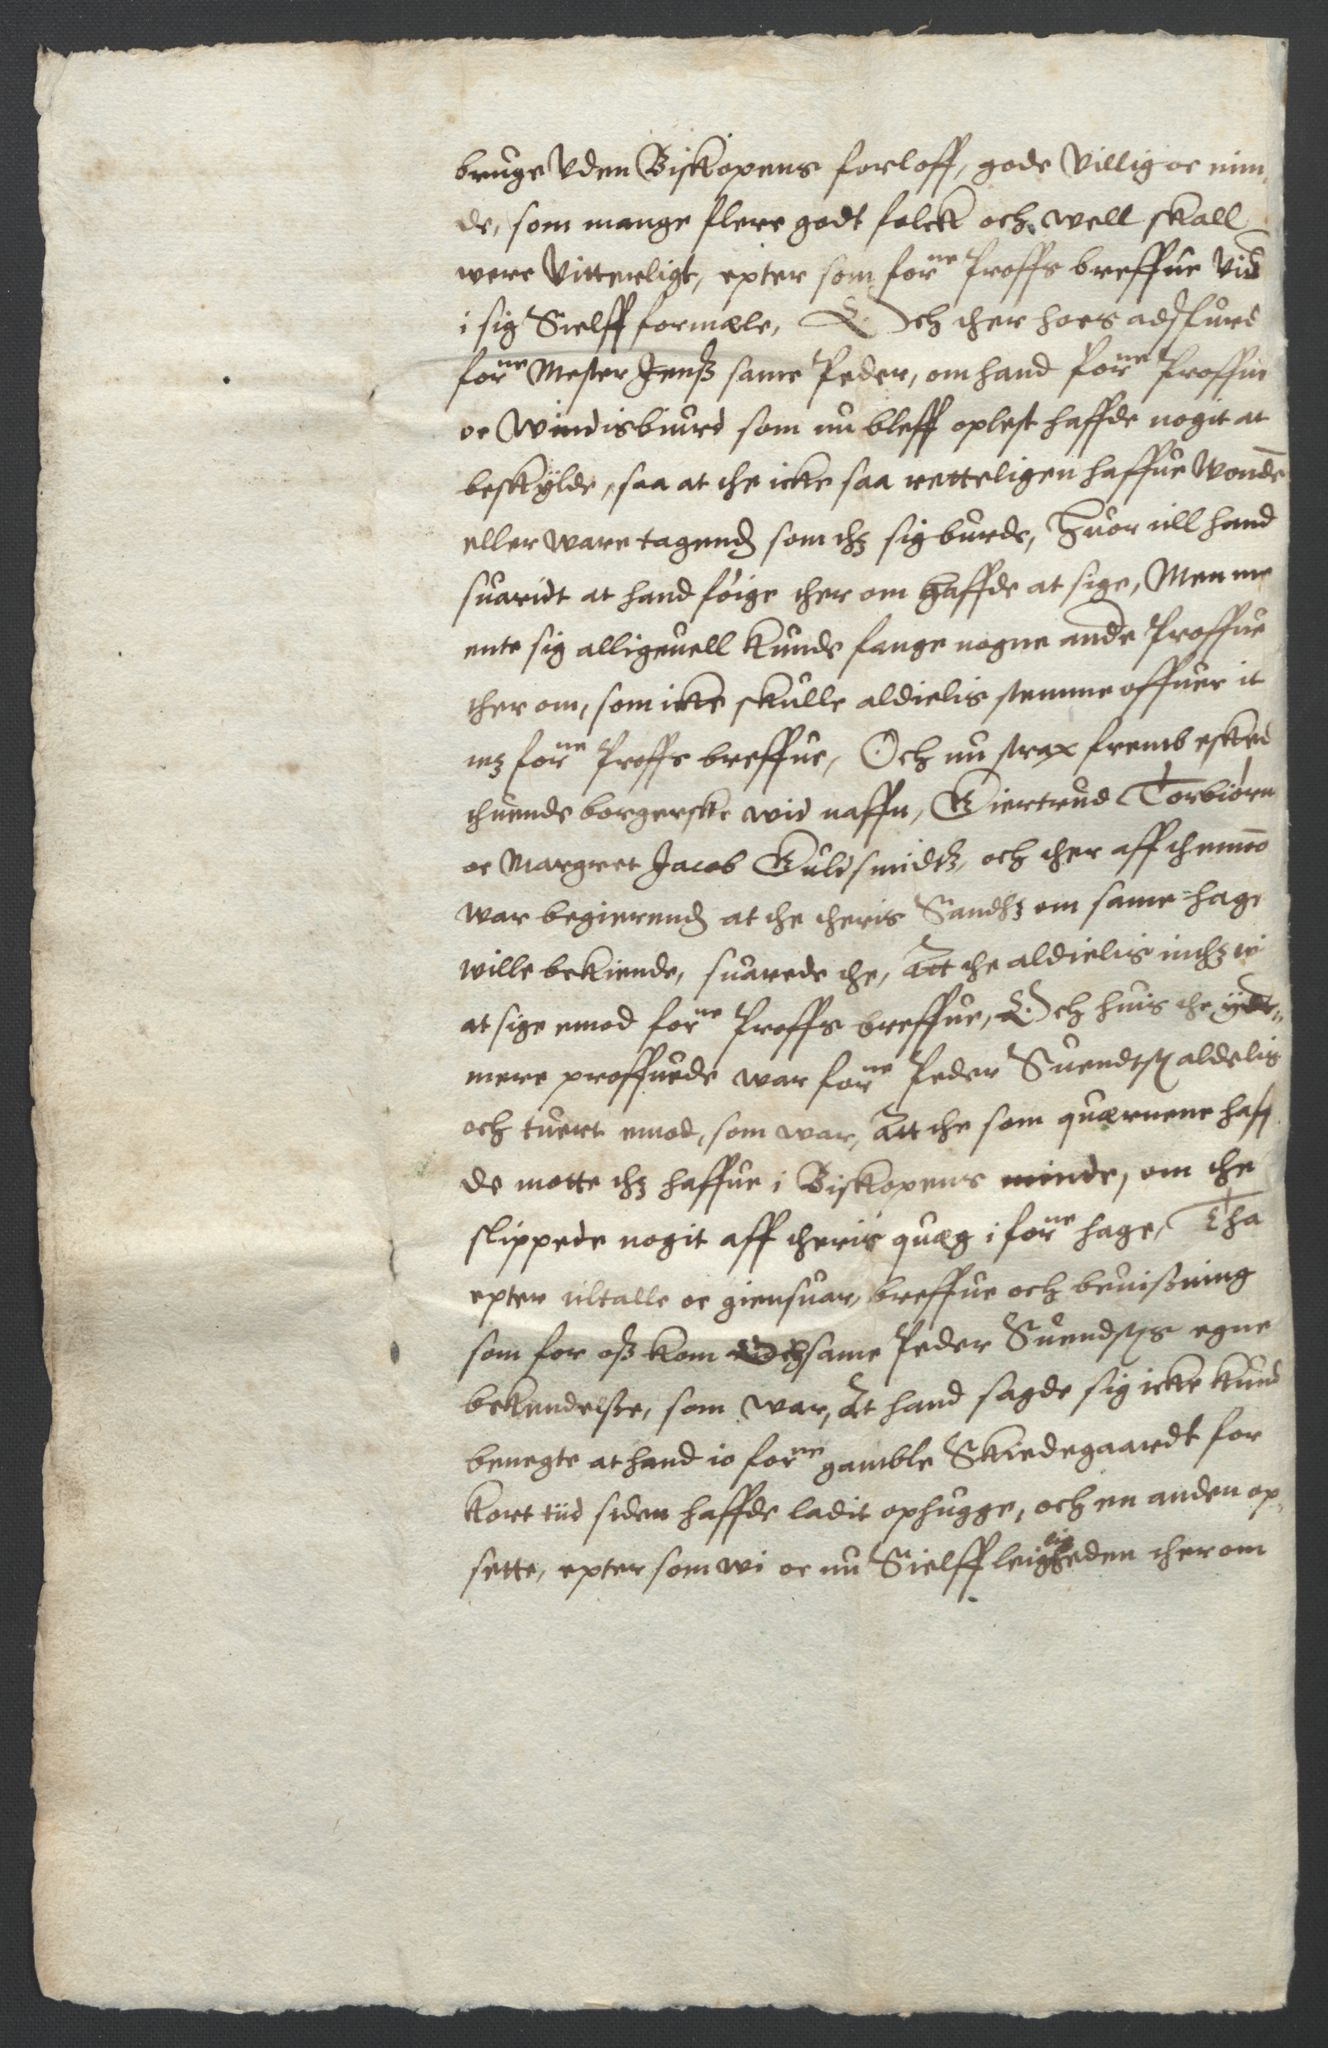 bruge Vden Biskopens forloff, gode Villig oc min,
de, som mange flere godt folck och well skall
were Vitterligt, epter som for^ne Proffs breffue Vid
i sig Sielff formæle, Och ther hoes adspurd
for^ne Mester Jenß same Peder, om hand for^ne Proffui
oc Windisbiurd som nu bleff oplest haffde nogit at
beskylde, saa at the icke saa retteligen haffue Wonde
eller ware tagend som thz sig burde, Huor till hand
suaridt at hand föige ther om haffde at sige, Men me
ente sig alligeuell kunde fange nogne ande Proffue
ther om, som icke skulle aldielis stemme offuer it
mz for^ne Proffs breffue, Och nu strax fremb esked
thuende borgerske wid naffn, Giertrud Torbiörn
oc Margret Jacob Guldsmidtz, och ther aff themmo
war begierend at the theris Sandhz om same hage
wille bekiende, suarede the, Att the aldielis inthz
at sige emod for^ne Proffs breffue, Och huis the ydt,,
mere proffuede war for^ne Peder Suendtß aldelis
och tuert emod, som war, Att the som quærnene haff
de motte thz haffue i Biskopens minde, om the
slippede nogit aff theris quæg i for^ne hage, Tha
epter tiltalle oc giensuar, breffue och beuißning
som for oß kom same Peder Suendsßs egne
bekendelße, som war, At hand sagde sig icke kund
benegte at hand io for^ne gamble Skiedegaardt for
kort tiid siden haffde ladit ophugge, och en anden op,
sette, epter som wi oc nu Sielff leigligheden ther om